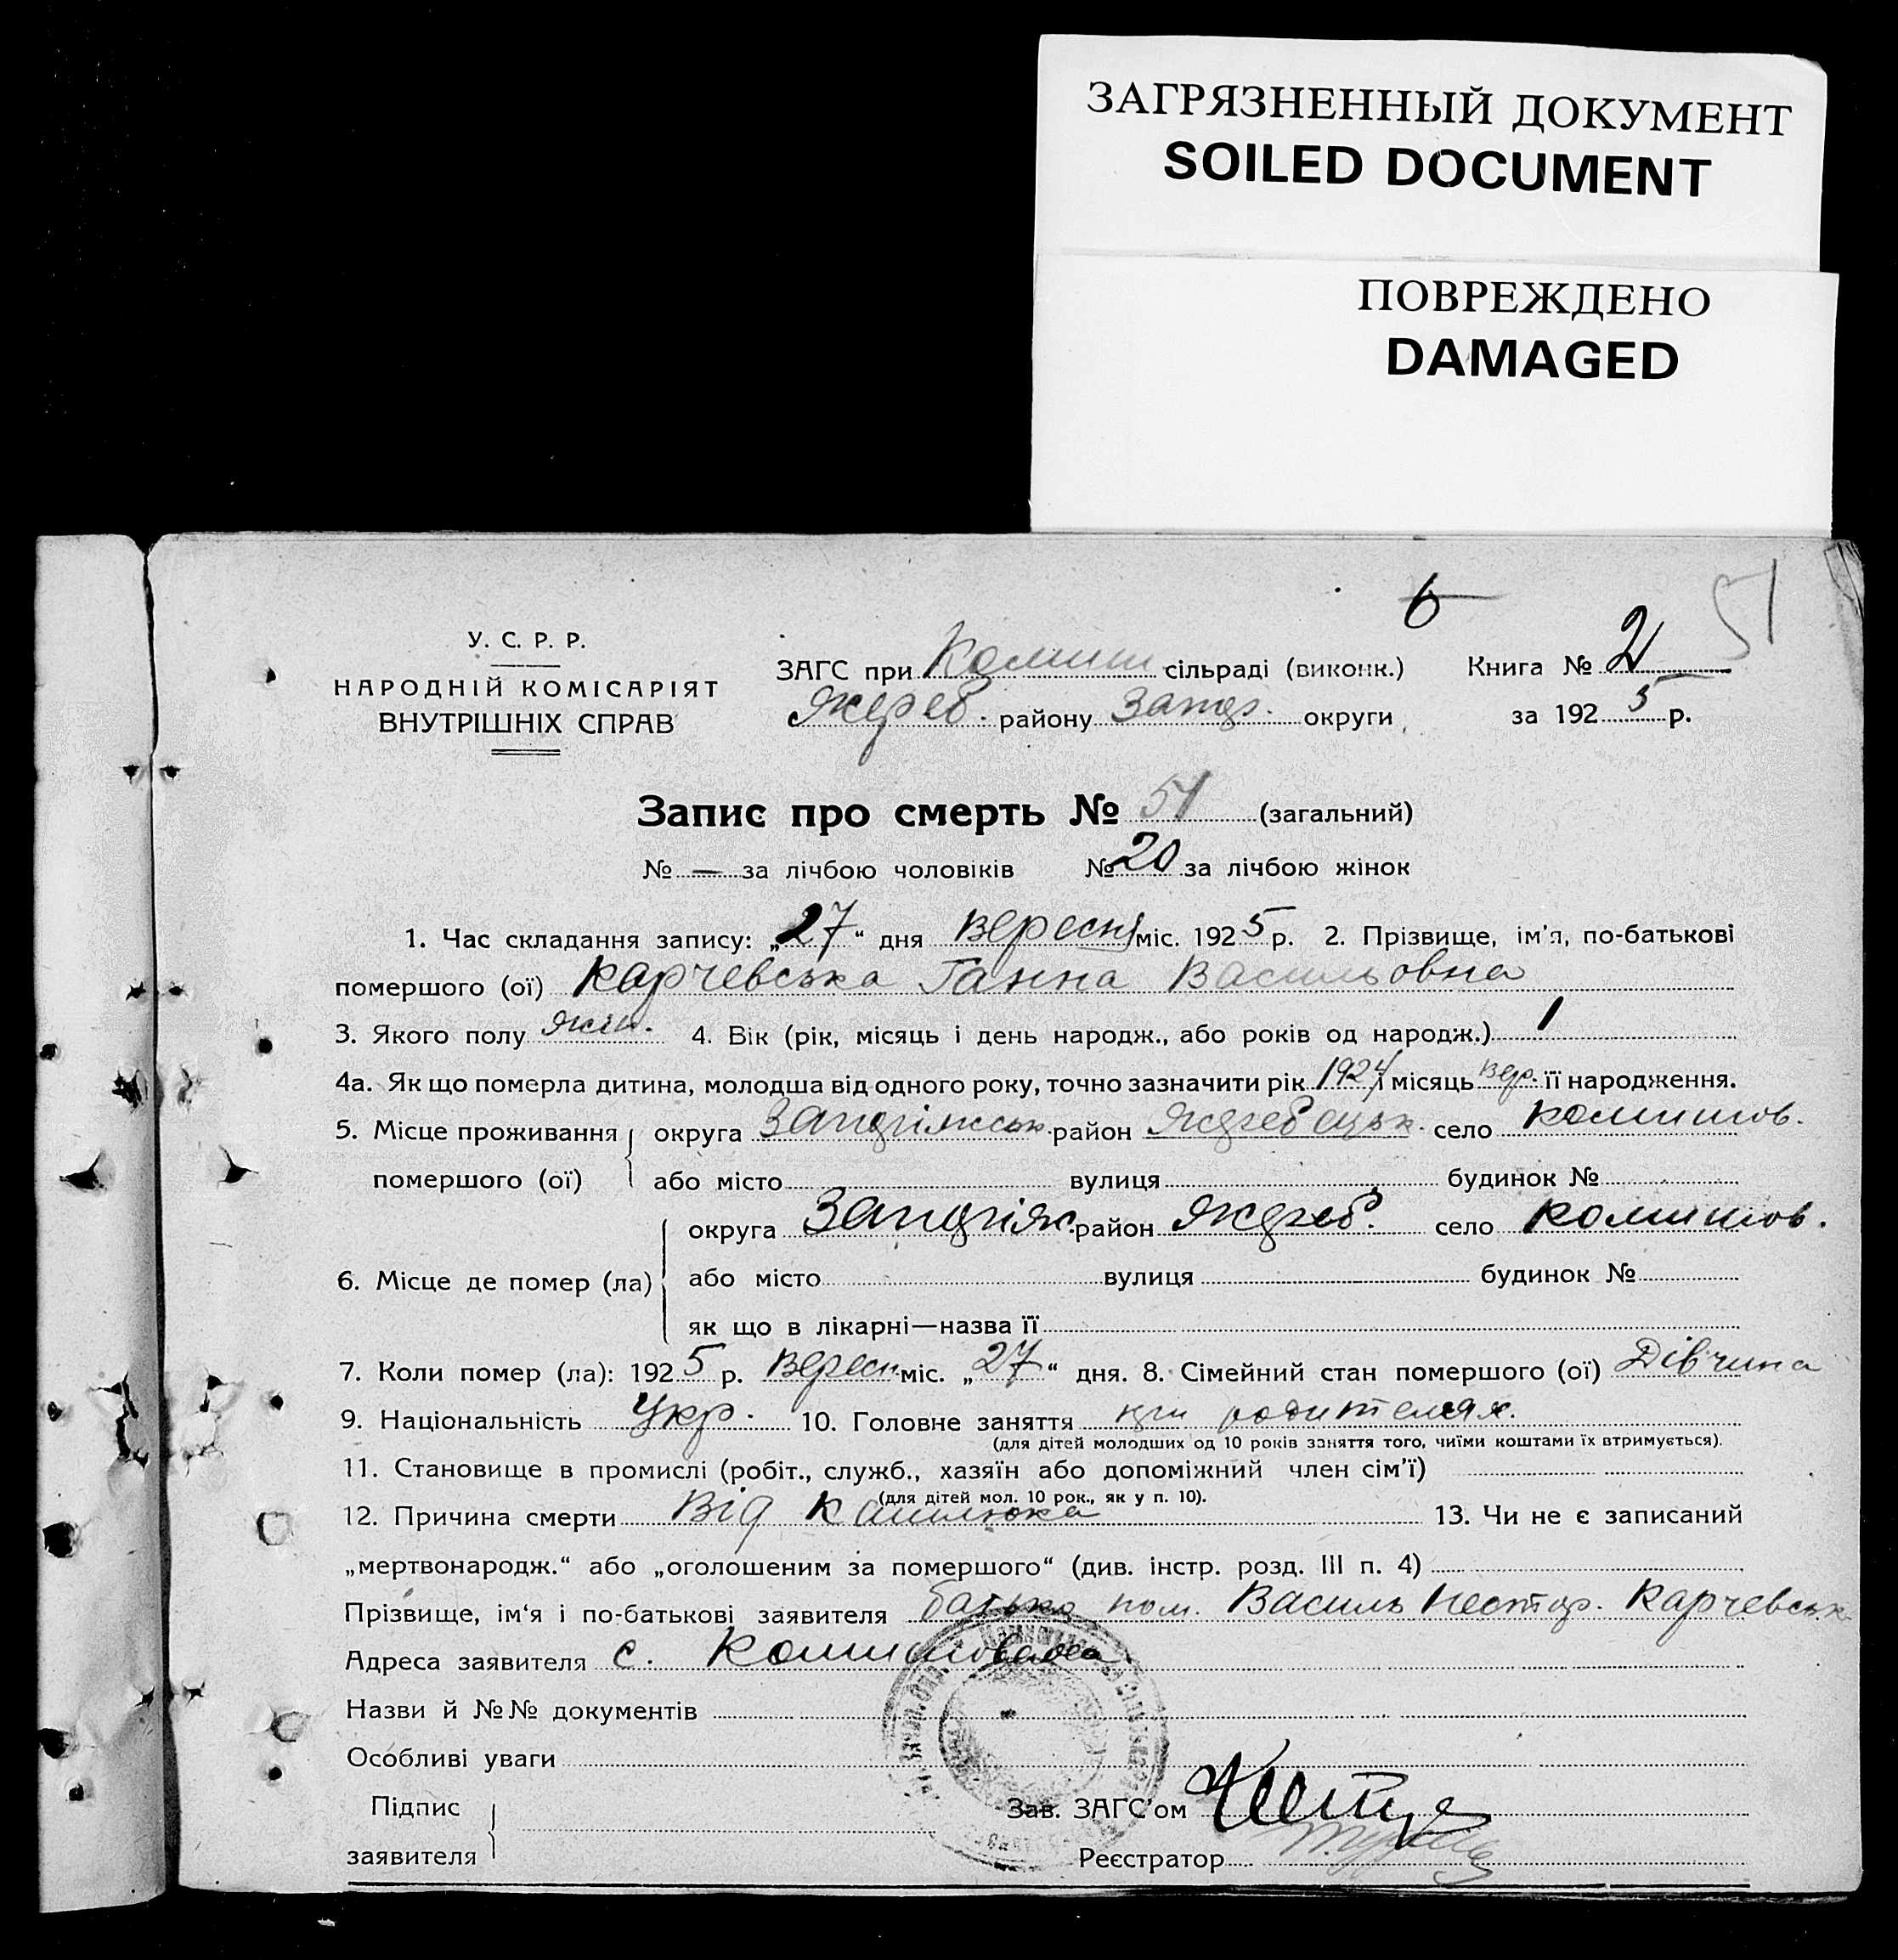 ЗАГРЯЗНЕННЫЙ ДОКУМЕНТ
SOILED DOCUMENT
ПОВРЕЖДЕНО
DAMAGED
6
51
У. С. Р. Р.
НАРОДНІЙ КОМІСАРІЯТ
ВНУТРІШНІХ СПРАВ
ЗАГС при Комиш сільраді (виконк.) Книга № 2
Жереб. району Запор. округи, за 1925 р.
Запис про смерть № 51 (загальний)
№ — за лічбою чоловіків № 20 за лічбою жінок
1. Час складання запису: „27“ дня Вересня міс. 1925 р. 2. Прізвище, ім'я, по-батькові
помершого (ої) Карчевська Ганна Васильовна
3. Якого полу жін. 4. Вік (рік, місяць і день народж., або років од народж.) 1
4а. Як що померла дитина, молодша від одного року, точно зазначити рік 1924 і місяць Вер. її народження.
5. Місце проживання помершого (ої) округа Запоріжськ. район Жеребецьк. село Комишов.
або місто вулиця будинок №
6. Місце де помер (ла) округа Запоріж. район Жереб. село Комишов.
або місто вулиця будинок №
як що в лікарні—назва її
7. Коли помер (ла): 1925 р. Вересн міс. „27“ дня. 8. Сімейний стан помершого (ої) Дівчина
9. Національність Укр. 10. Головне заняття при родителях.
(для дітей молодших од 10 років заняття того, чиїми коштами їх втримується).
11. Становище в промислі (робіт., служб., хазяїн або допоміжний член сім'ї)
(для дітей мол. 10 рок., як у п. 10).
12. Причина смерти Від Кашлюка 13. Чи не є записаний
„мертвонародж.“ або „оголошеним за помершого“ (див. інстр. розд. III п. 4)
Прізвище, ім'я і по-батькові заявителя батько пом. Василь Нестор. Карчевськ
Адреса заявителя с. Комишоваха
Назви й №№ документів
Особливі уваги
Підпис заявителя
Зав. ЗАГС'ом
Реєстратор